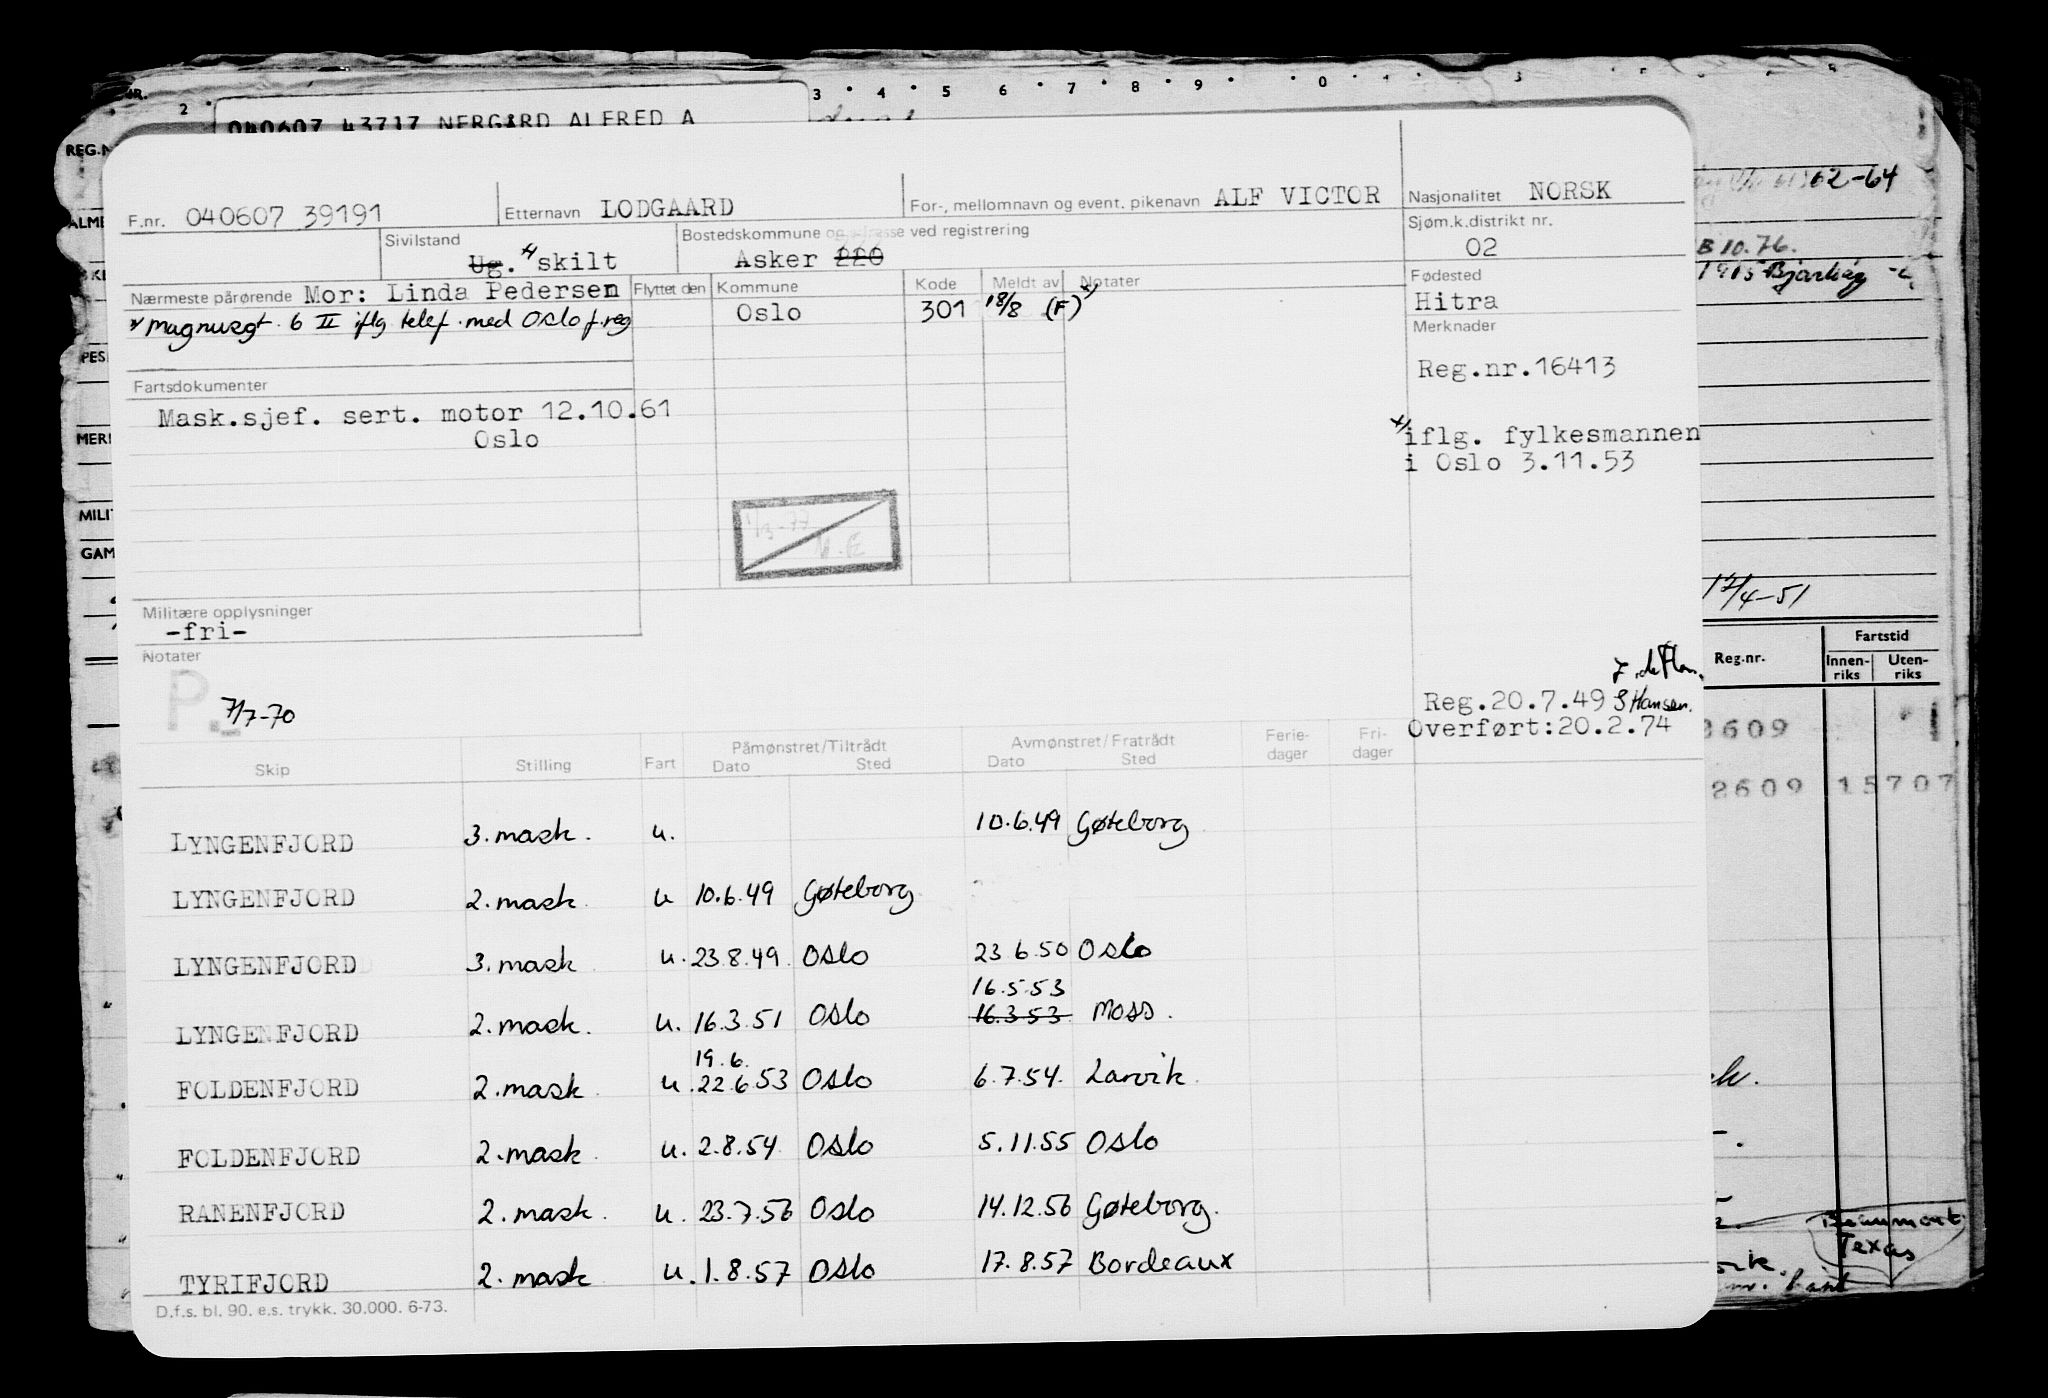 040607 43717 NERGÅRD ALFRED A
REG.N
62-64
B 10.76.
1915 Bjarkøy
17/4-51
Reg.nr.
Fartstid
Innen-riks Uten-riks
2609 15707
Beaumont
Texas
F.nr. 040607 39191 Etternavn LODGAARD For-, mellomnavn og event. pikenavn ALF VICTOR Nasjonalitet NORSK
Sivilstand Ug. x) skilt Bostedskommune og adresse ved registrering Asker 220 Sjøm.k.distrikt nr. 02
Nærmeste pårørende Mor: Linda Pedersen Flyttet den Kommune Kode Meldt av Notater Fødested Hitra
x) Magnusgt. 6 II iflg telef. med Oslo f.reg Oslo 301 18/8 (F) x)
Merknader
Reg.nr.16413
Fartsdokumenter
Mask.sjef. sert. motor 12.10.61
Oslo
x) iflg. fylkesmannen
i Oslo 3.11.53
1/3-77
Militære opplysninger
-fri-
Notater
P.
7/7-70
Reg.20.7.49 S Hansen.
Overført:20.2.74
Skip Stilling Fart Påmønstret/Tiltrådt Dato Sted Avmønstret/Fratrådt Dato Sted Ferie-dager Fri-dager
LYNGENFJORD 3. mask. u. 10.6.49 Gøteborg
LYNGENFJORD 2. mask u 10.6.49 Gøteborg
LYNGENFJORD 3. mask u. 23.8.49 Oslo 23 6.50 Oslo
16.5.53
LYNGENFJORD 2. mask. u. 16.3.51 Oslo 16.3 53 Moss.
19.6.
FOLDENFJORD 2. mask u. 22.6.53 Oslo 6.7.54. Larvik
FOLDENFJORD 2. mask u. 2.8.54 Oslo 5.11.55 Oslo
RANENFJORD 2. mask. u. 23.7.56 Oslo 14.12.56 Gøteborg.
TYRIFJORD 2. mask u. 1.8.57 Oslo 17.8.57 Bordeaux
D.f.s. bl. 90. e.s. trykk. 30.000. 6-73.